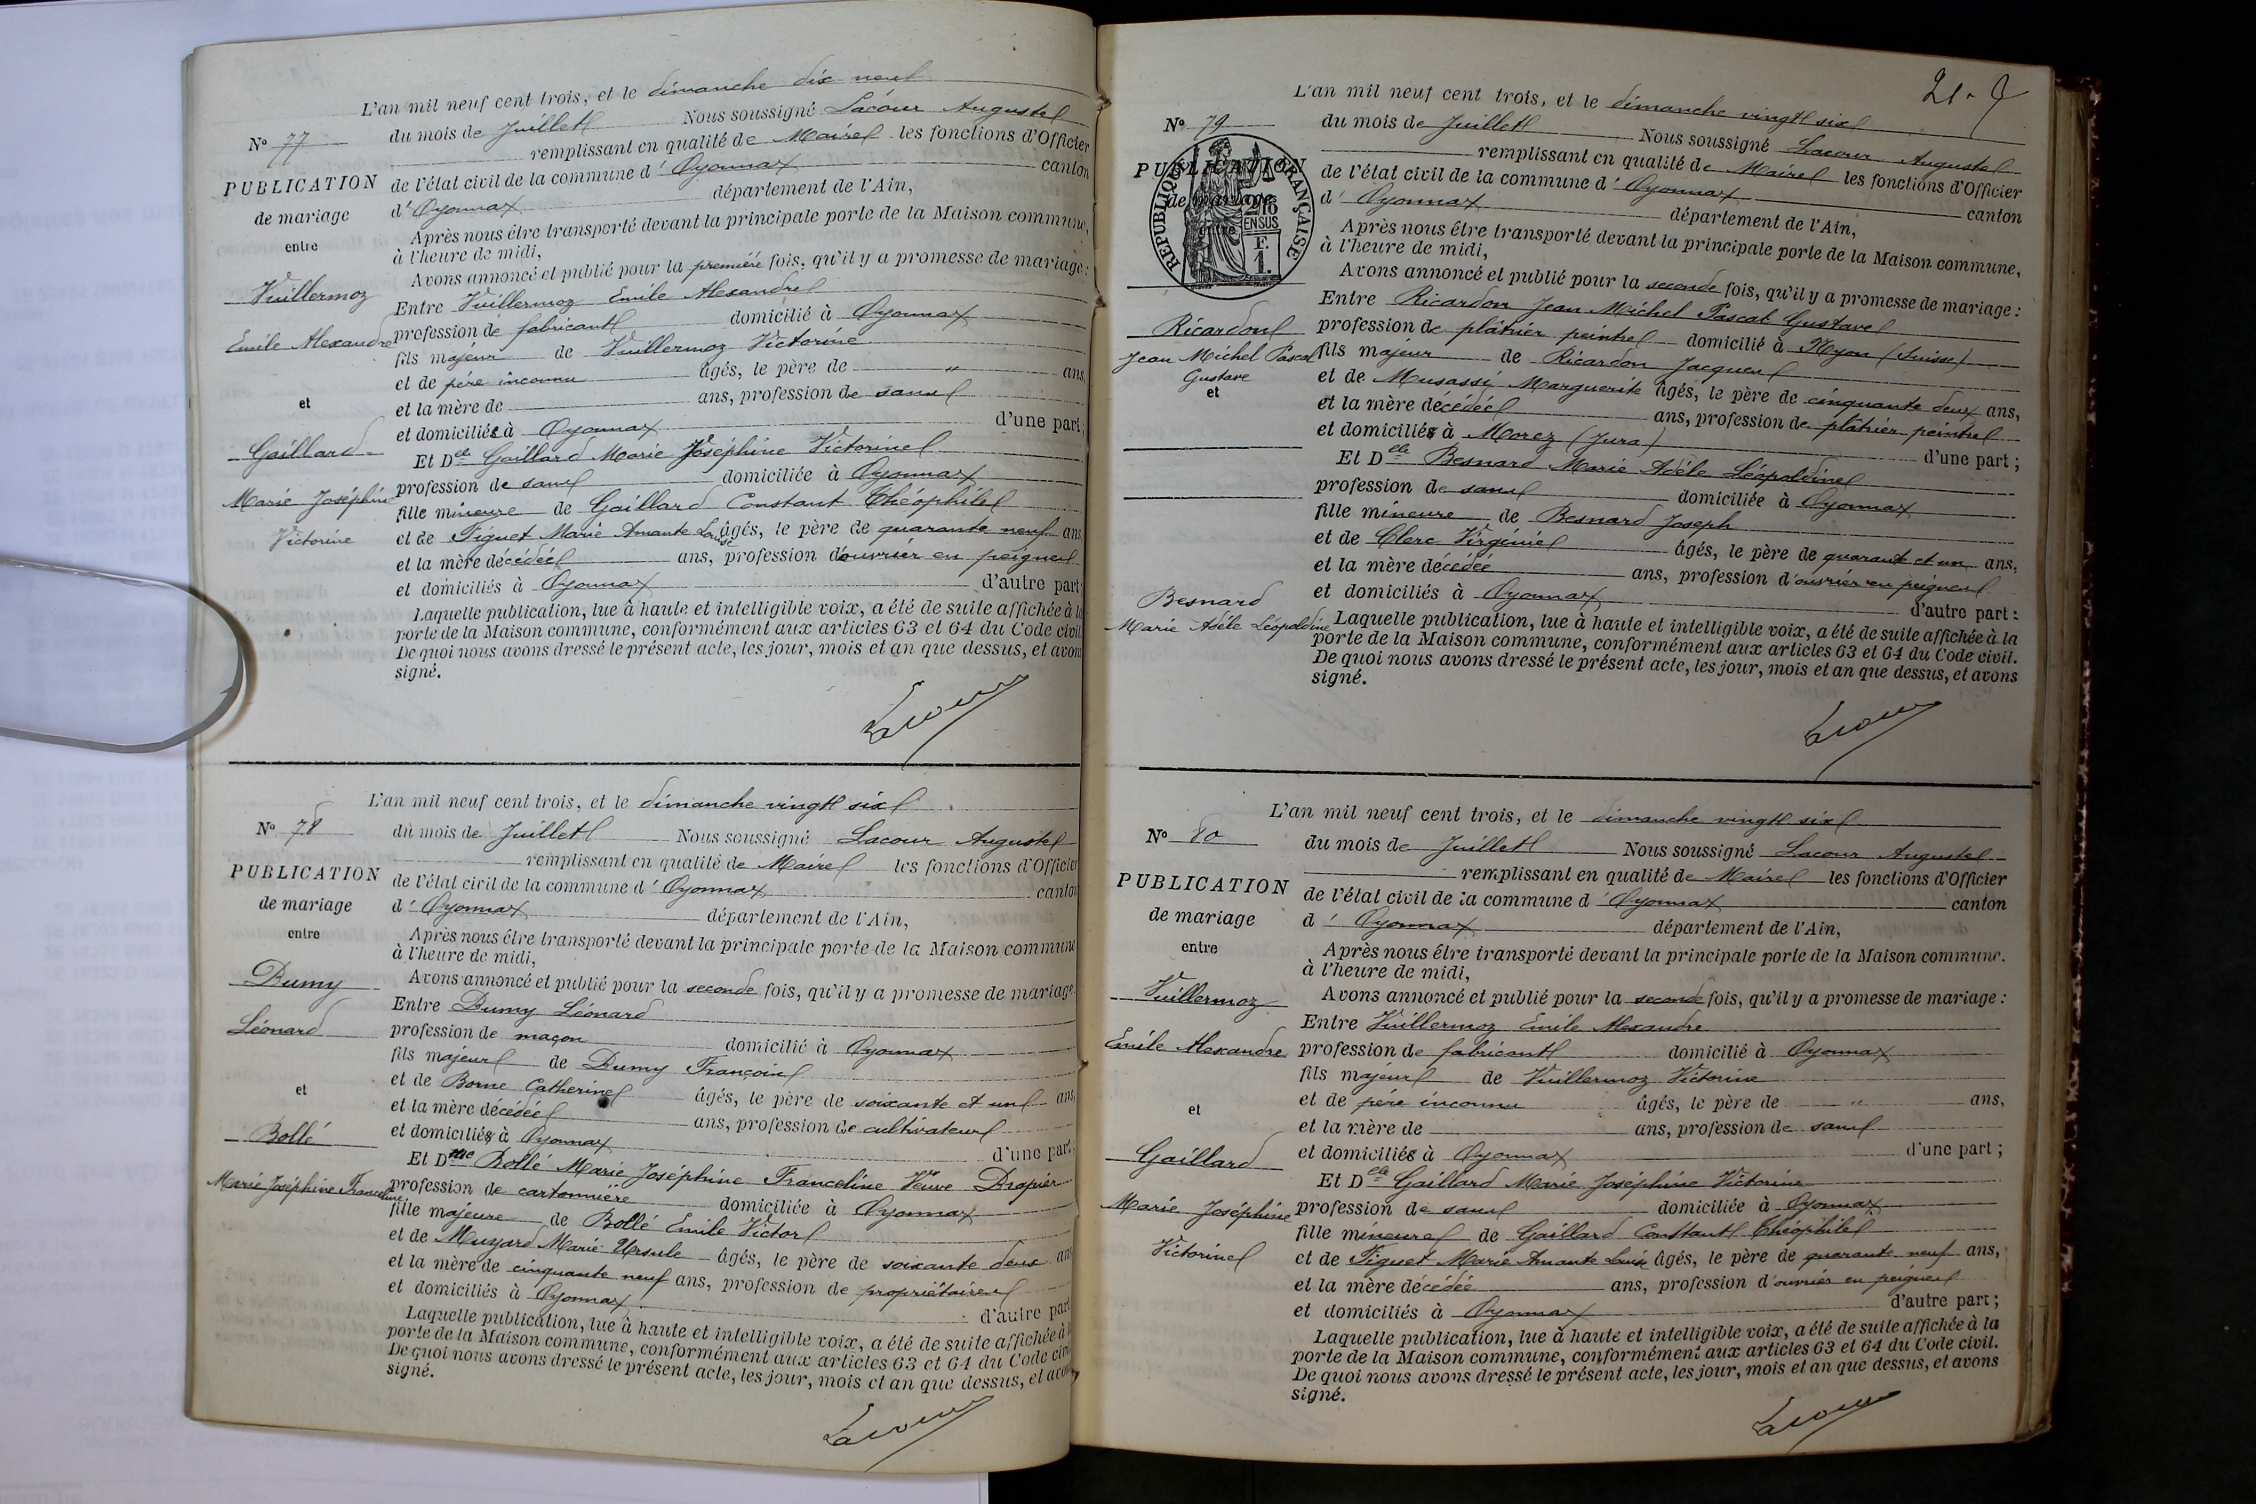 L'an mil neuf cent trois, et le dimanche dix neuf
N° 77
du mois de Juillet Nous soussigné Lacour Auguste
remplissant en qualité de Maire les fonctions d'Officier
PUBLICATION
de mariage
entre
de l'état civil de la commune d'Oyonnax canton
d'Oyonnax département de l'Ain,
Après nous être transporté devant la principale porte de la Maison commune,
à l'heure de midi,
Avons annoncé et publié pour la première fois, qu'il y a promesse de mariage:
Vuillermoz
Emile Alexandre
Entre Vuillermoz Emile Alexandre
profession de fabricant domicilié à Oyonnax
fils majeur de Vuillermoz Victorine
et de père inconnu âgés, le père de " ans,
et la mère de ans, profession de sans
et domiciliés à Oyonnax d'une part;
et
Gaillard
Marie Joséphine
Victorine
Et Delle Gaillard Marie Joséphine Victorine
profession de sans domiciliée à Oyonnax
fille mineure de Gaillard Constant Théophile
et de Figuet Marie Amante Louise âgés, le père de quarante neuf ans
et la mère décédée ans, profession d'ouvrier en peignes
et domiciliés à Oyonnax d'autre part:
Laquelle publication, lue à haute et intelligible voix, a été de suite affichée à la
porte de la Maison commune, conformément aux articles 63 et 64 du Code civil
De quoi nous avons dressé le présent acte, les jour, mois et an que dessus, et avons
signé.
Lacour
L'an mil neuf cent trois, et le dimanche vingt six
N° 78
du mois de Juillet Nous soussigné Lacour Auguste
remplissant en qualité de Maire les fonctions d'Officier
PUBLICATION
de mariage
entre
de l'état civil de la commune d'Oyonnax canton
d'Oyonnax département de l'Ain,
Après nous être transporté devant la principale porte de la Maison commune
à l'heure de midi,
Avons annoncé et publié pour la seconde fois, qu'il y a promesse de mariage
Dumy
Léonard
Entre Dumy Léonard
profession de maçon domicilié à Oyonnax
fils majeur de Dumy François
et de Borne Catherine âgés, le père de soixante et un ans,
et la mère décédée ans, profession de cultivateur
et domiciliés à Oyonnax d'une part
et
Bollé
Marie Joséphine Franceline
Et Dme Bollé Marie Joséphine Franceline Veuve Drapier
profession de cartonnière domiciliée à Oyonnax
fille majeure de Bollé Emile Victor
et de Muyard Marie Ursule âgés, le père de soixante deux ans
et la mère de cinquante neuf ans, profession de propriétaires
et domiciliés à Oyonnax d'autre part
Laquelle publication, lue à haute et intelligible voix, a été de suite affichée à
porte de la Maison commune, conformément aux articles 63 et 64 du Code civil
De quoi nous avons dressé le présent acte, les jour, mois et an que dessus, et avons
signé.
Lacour
21
L'an mil neuf cent trois, et le dimanche vingt six
N° 79
du mois de Juillet Nous soussigné Lacour Auguste
remplissant en qualité de Maire les fonctions d'Officier
PUBLICATION
de mariage
entre
RÉPUBLIQUE FRANÇAISE
2/10
EN SUS
F.
1.
de l'état civil de la commune d'Oyonnax canton
d'Oyonnax département de l'Ain,
Après nous être transporté devant la principale porte de la Maison commune,
à l'heure de midi,
Avons annoncé et publié pour la seconde fois, qu'il y a promesse de mariage:
Ricardon
Jean Michel Pascal
Gustave
Entre Ricardon Jean Michel Pascal Gustave
profession de plâtrier peintre domicilié à Nyon (Suisse)
fils majeur de Ricardon Jacques
et de Musassi Marguerite âgés, le père de cinquante deux ans,
et la mère décédée ans, profession de plâtrier peintre
et domiciliés à Morez (Jura) d'une part;
et
Besnard
Marie Adèle Léopoldine
Et Delle Besnard Marie Adèle Léopoldine
profession de sans domiciliée à Oyonnax
fille mineure de Besnard Joseph
et de Clerc Virginie âgés, le père de quarante et un ans,
et la mère décédée ans, profession d'ouvrier en peignes
et domiciliés à Oyonnax d'autre part:
Laquelle publication, lue à haute et intelligible voix, a été de suite affichée à la
porte de la Maison commune, conformément aux articles 63 et 64 du Code civil.
De quoi nous avons dressé le présent acte, les jour, mois et an que dessus, et avons
signé.
Lacour
L'an mil neuf cent trois, et le dimanche vingt six
N° 80
du mois de Juillet Nous soussigné Lacour Auguste
remplissant en qualité de Maire les fonctions d'Officier
PUBLICATION
de mariage
entre
de l'état civil de la commune d'Oyonnax canton
d'Oyonnax département de l'Ain,
Après nous être transporté devant la principale porte de la Maison commune.
à l'heure de midi,
Avons annoncé et publié pour la seconde fois, qu'il y a promesse de mariage:
Vuillermoz
Emile Alexandre
Entre Vuillermoz Emile Alexandre
profession de fabricant domicilié à Oyonnax
fils majeur de Vuillermoz Victorine
et de père inconnu âgés, le père de " ans,
et la mère de ans, profession de sans
et domiciliés à Oyonnax d'une part;
et
Gaillard
Marie Joséphine
Victorine
Et Delle Gaillard Marie Joséphine Victorine
profession de sans domiciliée à Oyonnax
fille mineure de Gaillard Constant Théophile
et de Figuet Marie Amante Louise âgés, le père de quarante neuf ans,
et la mère décédée ans, profession d'ouvrier en peignes
et domiciliés à Oyonnax d'autre part;
Laquelle publication, lue à haute et intelligible voix, a été de suite affichée à la
porte de la Maison commune, conformément aux articles 63 et 64 du Code civil.
De quoi nous avons dressé le présent acte, les jour, mois et an que dessus, et avons
signé.
Lacour